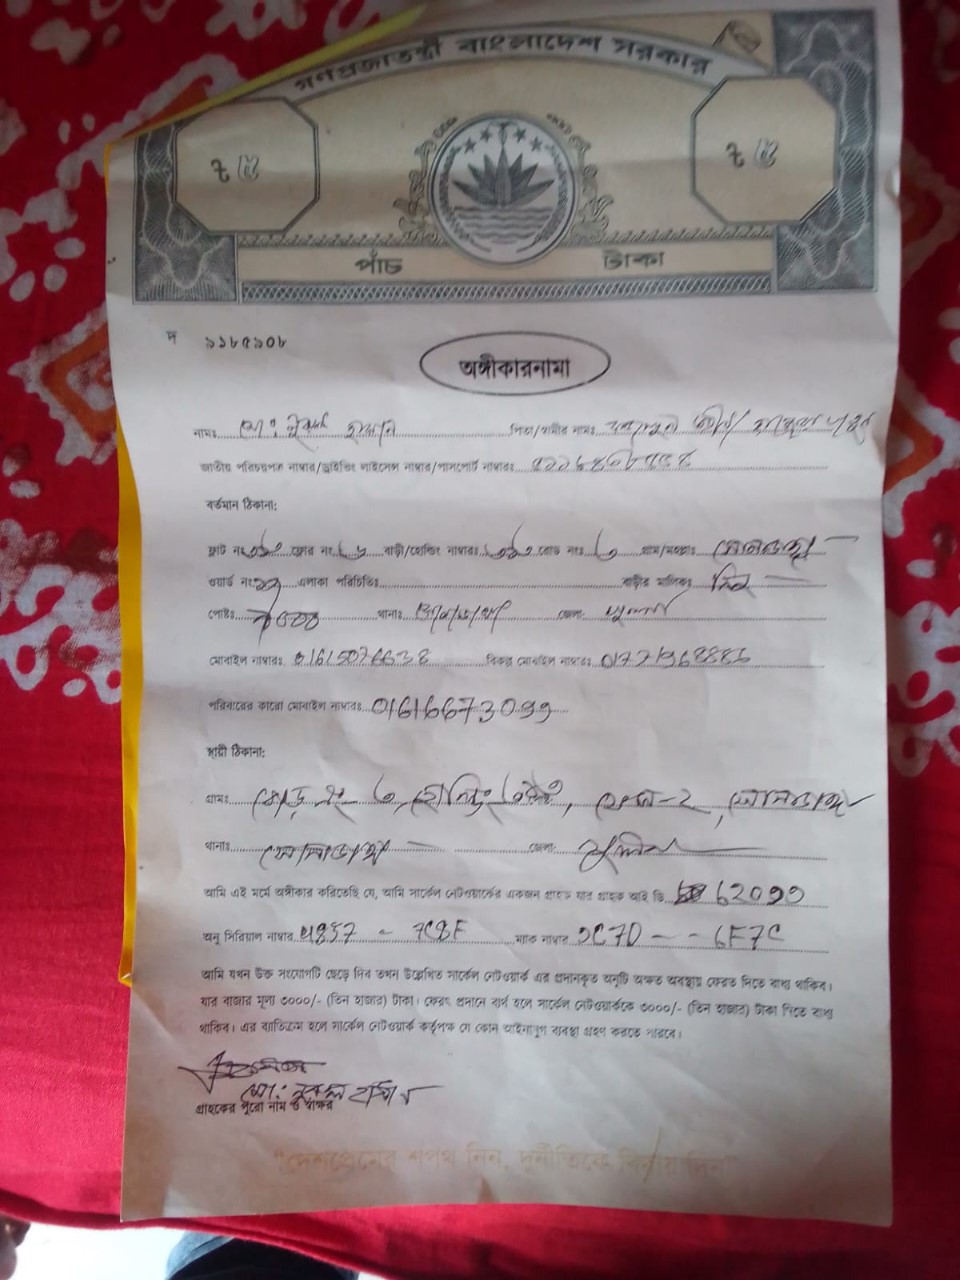 গণপ্রজাতন্ত্রী বাংলাদেশ সরকার
৳ ৫ ৳ ৫
পাঁচ টাকা
দ ৯১৮৫৯০৮
অঙ্গীকারনামা
নামঃ মোঃ পিতা/স্বামীর নামঃ
জাতীয় পরিচয়পত্র নাম্বার/ড্রাইভিং লাইসেন্স নাম্বার/পাসপোর্ট নাম্বারঃ
বর্তমান ঠিকানা:
ফ্লাট নং ফ্লোর নং বাড়ী/হোল্ডিং নাম্বারঃ রোড নংঃ গ্রাম/মহল্লাঃ সোনাডাঙ্গা
ওয়ার্ড নংঃ এলাকা পরিচিতিঃ বাড়ীর মালিকঃ নিজ
পোষ্টঃ ৯০০০ থানাঃ জেলা: খুলনা
মোবাইল নাম্বারঃ 01615076638 বিকল্প মোবাইল নাম্বারঃ
পরিবারের কারো মোবাইল নাম্বারঃ 01616673099
স্থায়ী ঠিকানা:
গ্রামঃ রোড নং- ৩, হোল্ডিং ফেজ-২, সোনাডাঙ্গা
থানাঃ সোনাডাঙ্গা জেলা: খুলনা
আমি এই মর্মে অঙ্গীকার করিতেছি যে, আমি সার্কেল নেটওয়ার্কের একজন গ্রাহক যার গ্রাহক আই ডি 62090
অনু সিরিয়াল নাম্বার 4857 - 7CBF ম্যাক নাম্বার 9C7D - - 6F7C
আমি যখন উক্ত সংযোগটি ছেড়ে দিব তখন উল্লেখিত সার্কেল নেটওয়ার্ক এর প্রদানকৃত অনুটি অক্ষত অবস্থায় ফেরত দিতে বাধ্য থাকিব।
যার বাজার মূল্য ৩০০০/- (তিন হাজার) টাকা। ফেরৎ প্রদানে ব্যর্থ হলে সার্কেল নেটওয়ার্ককে ৩০০০/- (তিন হাজার) টাকা দিতে বাধ্য
থাকিব। এর ব্যতিক্রম হলে সার্কেল নেটওয়ার্ক কর্তৃপক্ষ যে কোন আইনানুগ ব্যবস্থা গ্রহণ করতে পারবে।
মোঃ
গ্রাহকের পুরো নাম ও স্বাক্ষর
"দেশপ্রেমের শপথ নিন, দুর্নীতিকে বিদায় দিন"